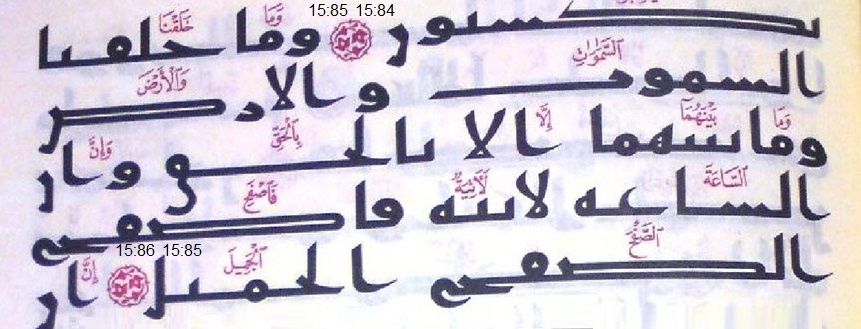 15:85 15:84
وَمَا خَلَقْنَا
يكسبون وما خلقنا
ٱلسَّمَٰوَٰتِ وَٱلْأَرْضَ
السموت والارض
وَمَا بَيْنَهُمَآ إِلَّا بِٱلْحَقِّ وَإِنَّ
وما بينهما الا بالحق وان
ٱلسَّاعَةَ لَءَاتِيَةٌ فَٱصْفَحِ
الساعة لاتية فاصفح
15:86 15:85
ٱلصَّفْحَ ٱلْجَمِيلَ إِنَّ
الصفح الجميل ان